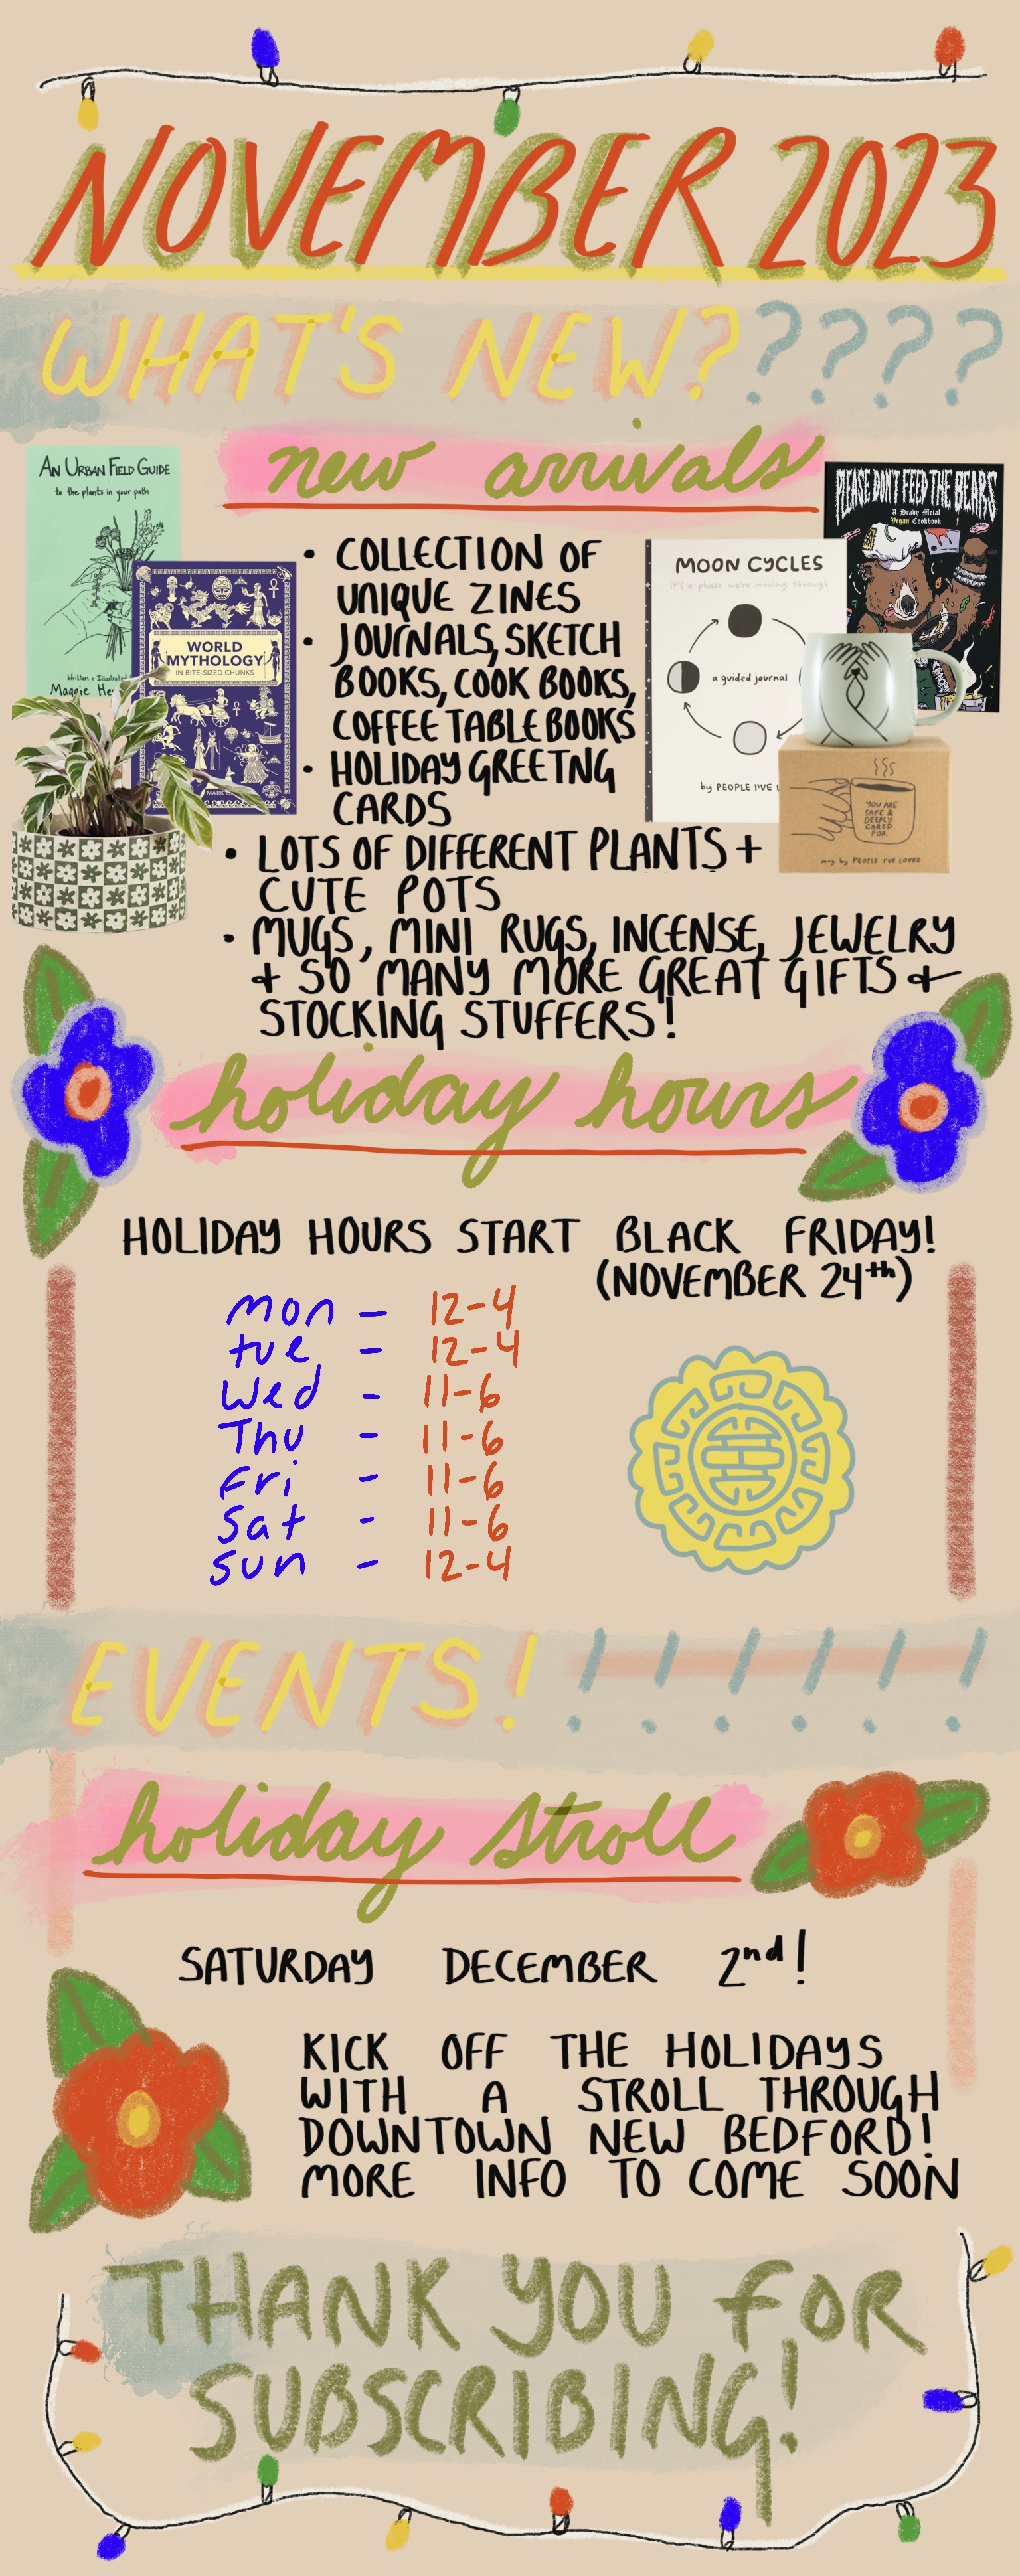 NOVEMBER 2023
WHAT'S NEW?????
new arrivals
AN URBAN FIELD GUIDE
to the plants in your path
Written + Illustrated
Maggie
WORLD
MYTHOLOGY
IN BITE-SIZED CHUNKS
MARK
• COLLECTION OF
UNIQUE ZINES
• JOURNALS, SKETCH
BOOKS, COOK BOOKS,
COFFEE TABLE BOOKS
• HOLIDAY GREETNG
CARDS
• LOTS OF DIFFERENT PLANTS +
CUTE POTS
• MUGS, MINI RUGS, INCENSE, JEWELRY
+ SO MANY MORE GREAT GIFTS +
STOCKING STUFFERS!
MOON CYCLES
it's a phase we're moving through
a guided journal
by PEOPLE I'VE
PLEASE DON'T FEED THE BEARS
A Heavy Metal
Vegan Cookbook
YOU ARE
SAFE &
DEEPLY
CARED
FOR.
mug by PEOPLE I'VE LOVED
holiday hours
HOLIDAY HOURS START BLACK FRIDAY!
(NOVEMBER 24th)
mon - 12-4
tue - 12-4
Wed - 11-6
Thu - 11-6
Fri - 11-6
Sat - 11-6
sun - 12-4
EVENTS! ! ! ! ! ! !
holiday stroll
SATURDAY DECEMBER 2nd!
KICK OFF THE HOLIDAYS
WITH A STROLL THROUGH
DOWNTOWN NEW BEDFORD!
MORE INFO TO COME SOON
THANK YOU FOR
SUBSCRIBING!